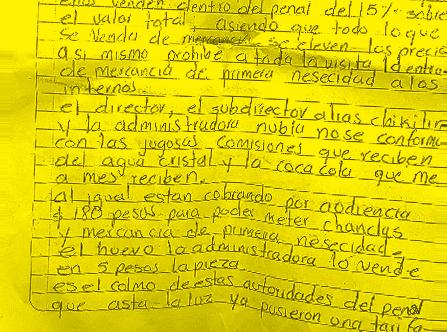 venden dentro del penal del 15% sobre
el valor total, asiendo que todo lo que
se venda de mercancia se eleven las precio
asi mismo prohibe a toda la visita la entra
de mercancia de primera nesecidad a los
internos.
el director, el subdirector alias chikilin
y la administradora nubia no se conform
con las jugosas comisiones que reciben
del agua cristal y la coca cola que me
a mes reciben.
al igual estan cobrando por audiencia
$ 180 pesos para poder meter chanclas
y mercancia de primera nesecidad.
el huevo la administradora lo vende
en 5 pesos la pieza.
es el colmo de estas autoridades del penal
que asta la luz ya pusieron una tarifa